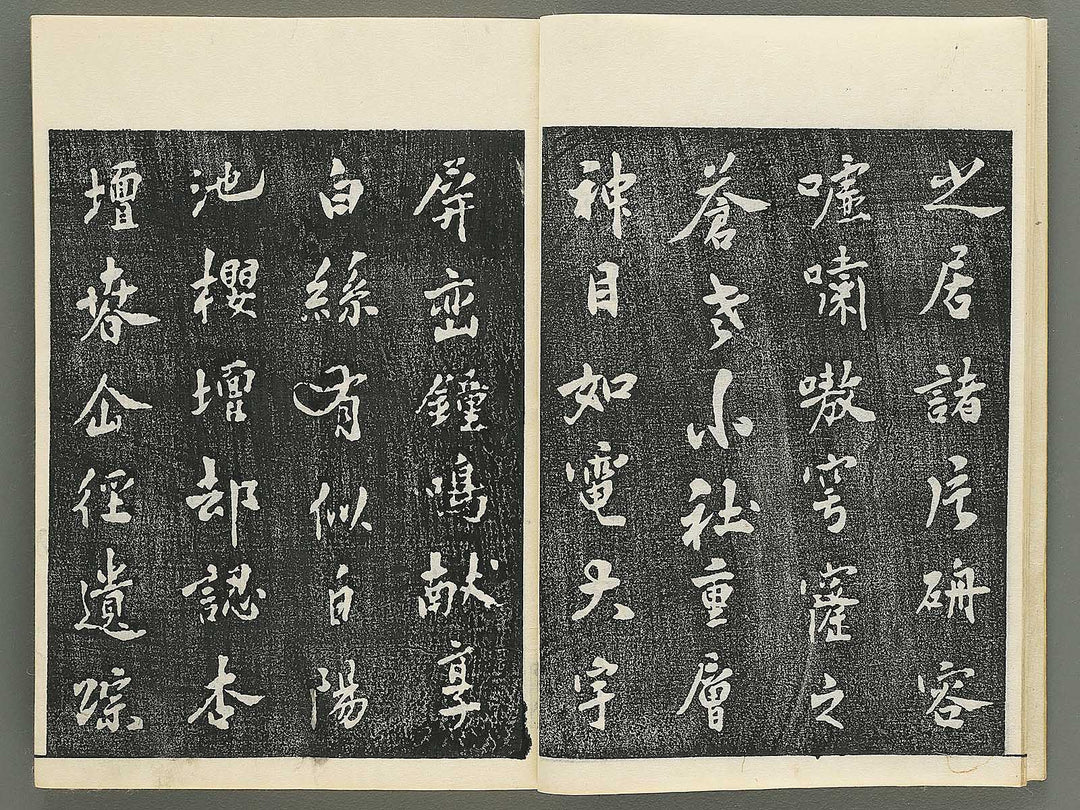 之居諸片研容
嘘嘯嗷雩窿之
蒼老小社重層
神目如電大宇
屏峦鐘鳴献享
白絲有似白陽
池櫻壇却認杏
壇春企徑遺踪